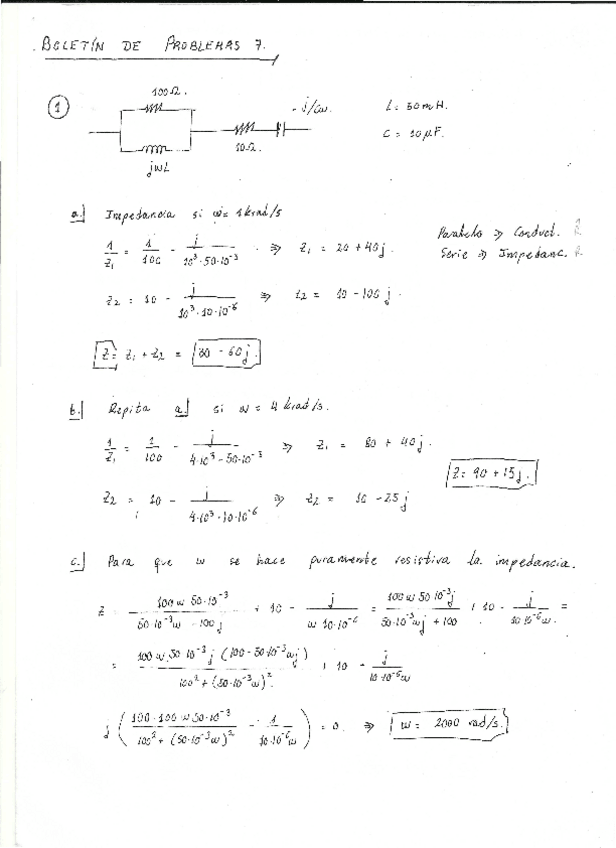 BOLETÍN DE PROBLEMAS 7.
1
100Ω.
jωL
10Ω.
- j/Cω.
L = 50mH.
C = 10μF.
a.| Impedancia si ω = 1 krad/s
Paralelo => Conduct.
Serie => Impedanc.
1/Z1 = 1/100 - j/(10^3·50·10^-3) => Z1 = 20 + 40j.
Z2 = 10 - j/(10^3·10·10^-6) => Z2 = 10 - 100j.
Z = Z1 + Z2 = 30 - 60j.
b.| Repita a.| si ω = 4 krad/s.
1/Z1 = 1/100 - j/(4·10^3-50·10^-3) => Z1 = 80 + 40j.
Z = 90 + 15j.
Z2 = 10 - j/(4·10^3·10·10^-6) => Z2 = 10 - 25j
c.| Para que ω se hace puramente resistiva la impedancia.
Z = (100ω 50·10^-3)/(50·10^-3ω - 100j) + 10 - j/(ω 10·10^-6) = (100ω 50·10^-3j)/(50·10^-3ωj + 100) + 10 - j/(10·10^-6ω) =
= (100ω 50·10^-3j (100 - 50·10^-3ωj))/(100^2 + (50·10^-3ω)^2) + 10 - j/(10·10^-6ω)
j((100·100·ω50·10^-3)/(100^2 + (50·10^-3ω)^2) - 1/(10·10^-6ω)) = 0. => ω = 2000 rad/s.